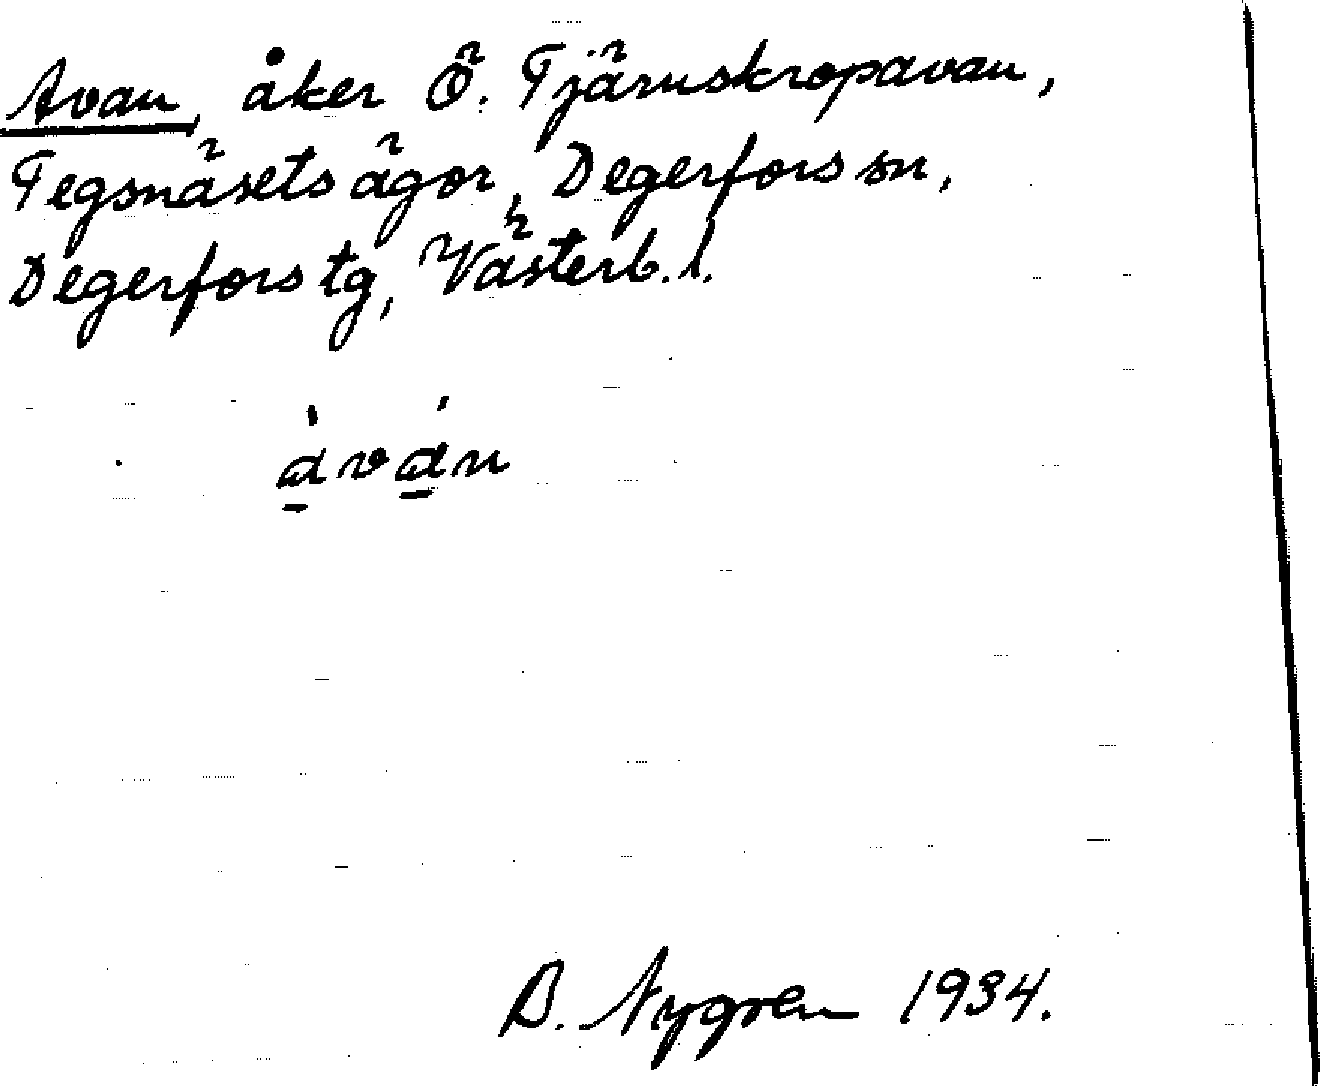 Avan, åker Ö. Tjäruskropavan,
Tegsnäsets ägor, Degerfors sn,
Degerfors tg, Västerb. l.
àván
B. Nygren 1934.